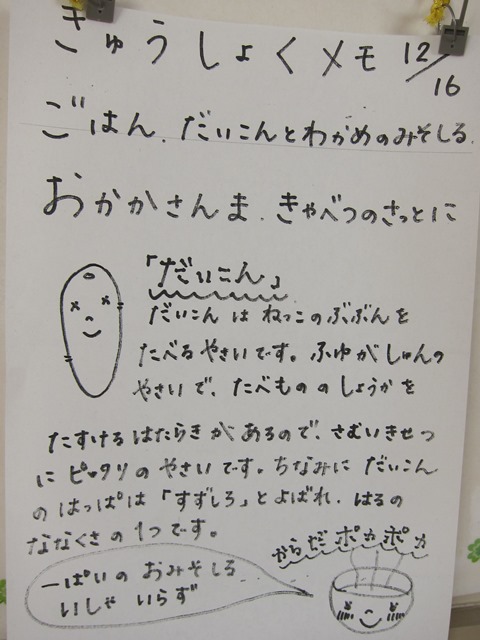 きゅうしょくメモ 12/16
ごはん、だいこんとわかめのみそしる、
おかかさんま、きゃべつのさっとに
「だいこん」
だいこんはねっこのぶぶんを
たべるやさいです。ふゆがしゅんの
やさいで、たべもののしょうかを
たすけるはたらきがあるので、さむいきせつ
にピッタリのやさいです。ちなみにだいこん
のはっぱは「すずしろ」とよばれ、はるの
ななくさの1つです。
からだポカポカ
一ぱいのおみそしる
いしゃいらず